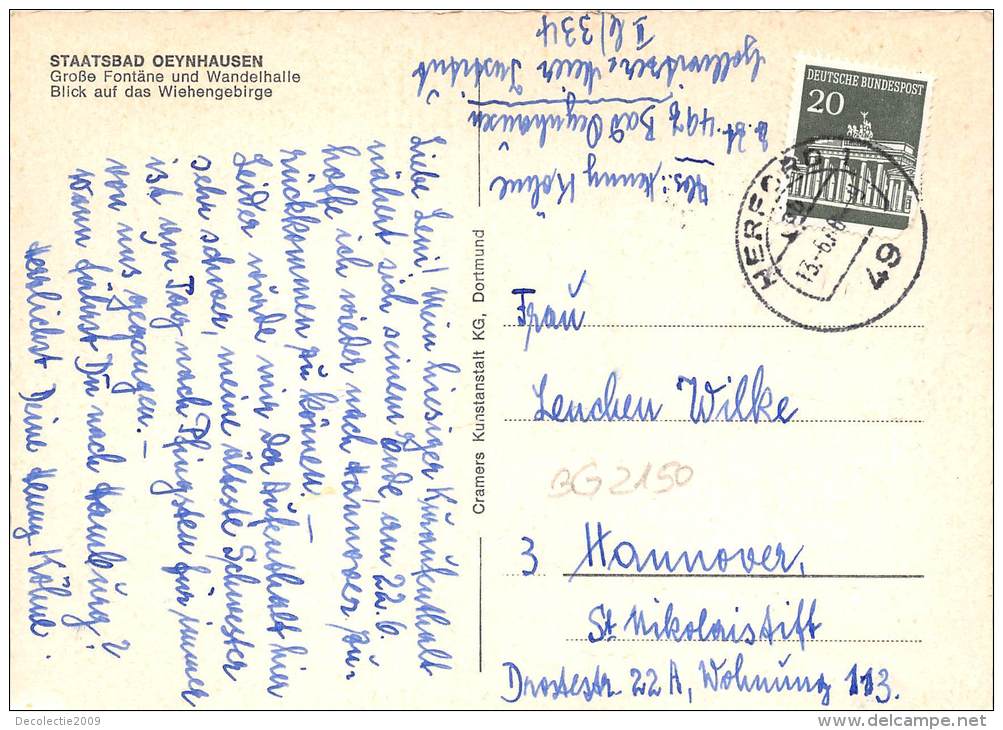 STAATSBAD OEYNHAUSEN
Große Fontäne und Wandelhalle
Blick auf das Wiehengebirge
Abs.: Henny Köhne
z. Zt. 497 Bad Oeynhausen
Gollwitzer-Meier Institut
II b/334
DEUTSCHE BUNDESPOST
20
HERFORD 1
13.-6.
49
Liebe Leni! Mein hiesiger Kuraufenthalt
nähert sich seinem Ende, am 22.6.
hoffe ich wieder nach Hannover zu-
rückkommen zu können. –
Leider wurde mir der Aufenthalt hier
sehr schwer, meine älteste Schwester
ist am Tag nach Pfingsten für immer
von uns gegangen. –
Wann fährst Du nach Hamburg?
Herzlichst Deine Henny Köhne.
Cramers Kunstanstalt KG, Dortmund
Frau
Lenchen Wilke
BG2150
3 Hannover,
St. Nikolaistift
Drostestr. 22 A, Wohnung 113.
Decolectie2009
delcampe.net